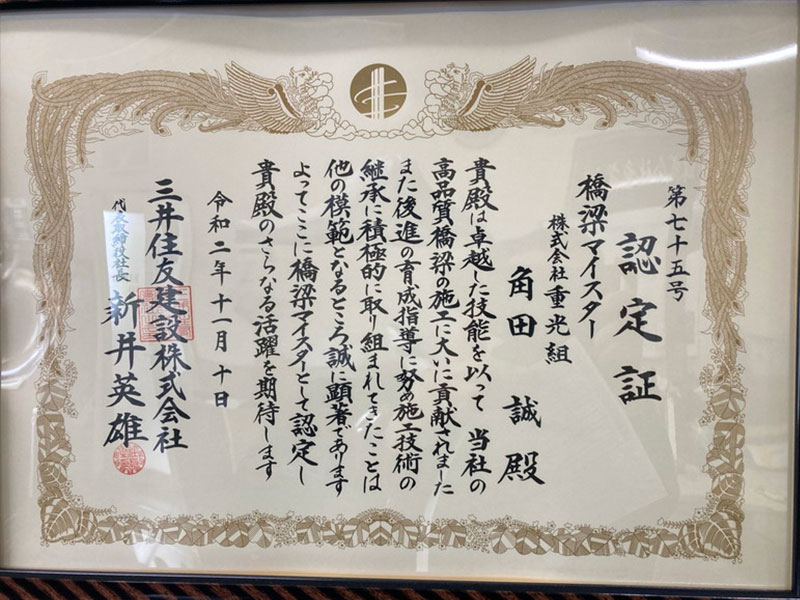 第七十五号
認定証
橋梁マイスター
株式会社重光組
角田 誠 殿
貴殿は卓越した技能を以って 当社の
高品質橋梁の施工に大いに貢献されました
また後進の育成指導に努め施工技術の
継承に積極的に取り組まれてきたことは
他の模範となるところ誠に顕著であります
よってここに橋梁マイスターとして認定し
貴殿のさらなる活躍を期待します
令和二年 十一月 十日
三井住友建設株式会社
代表取締役社長 新井英雄